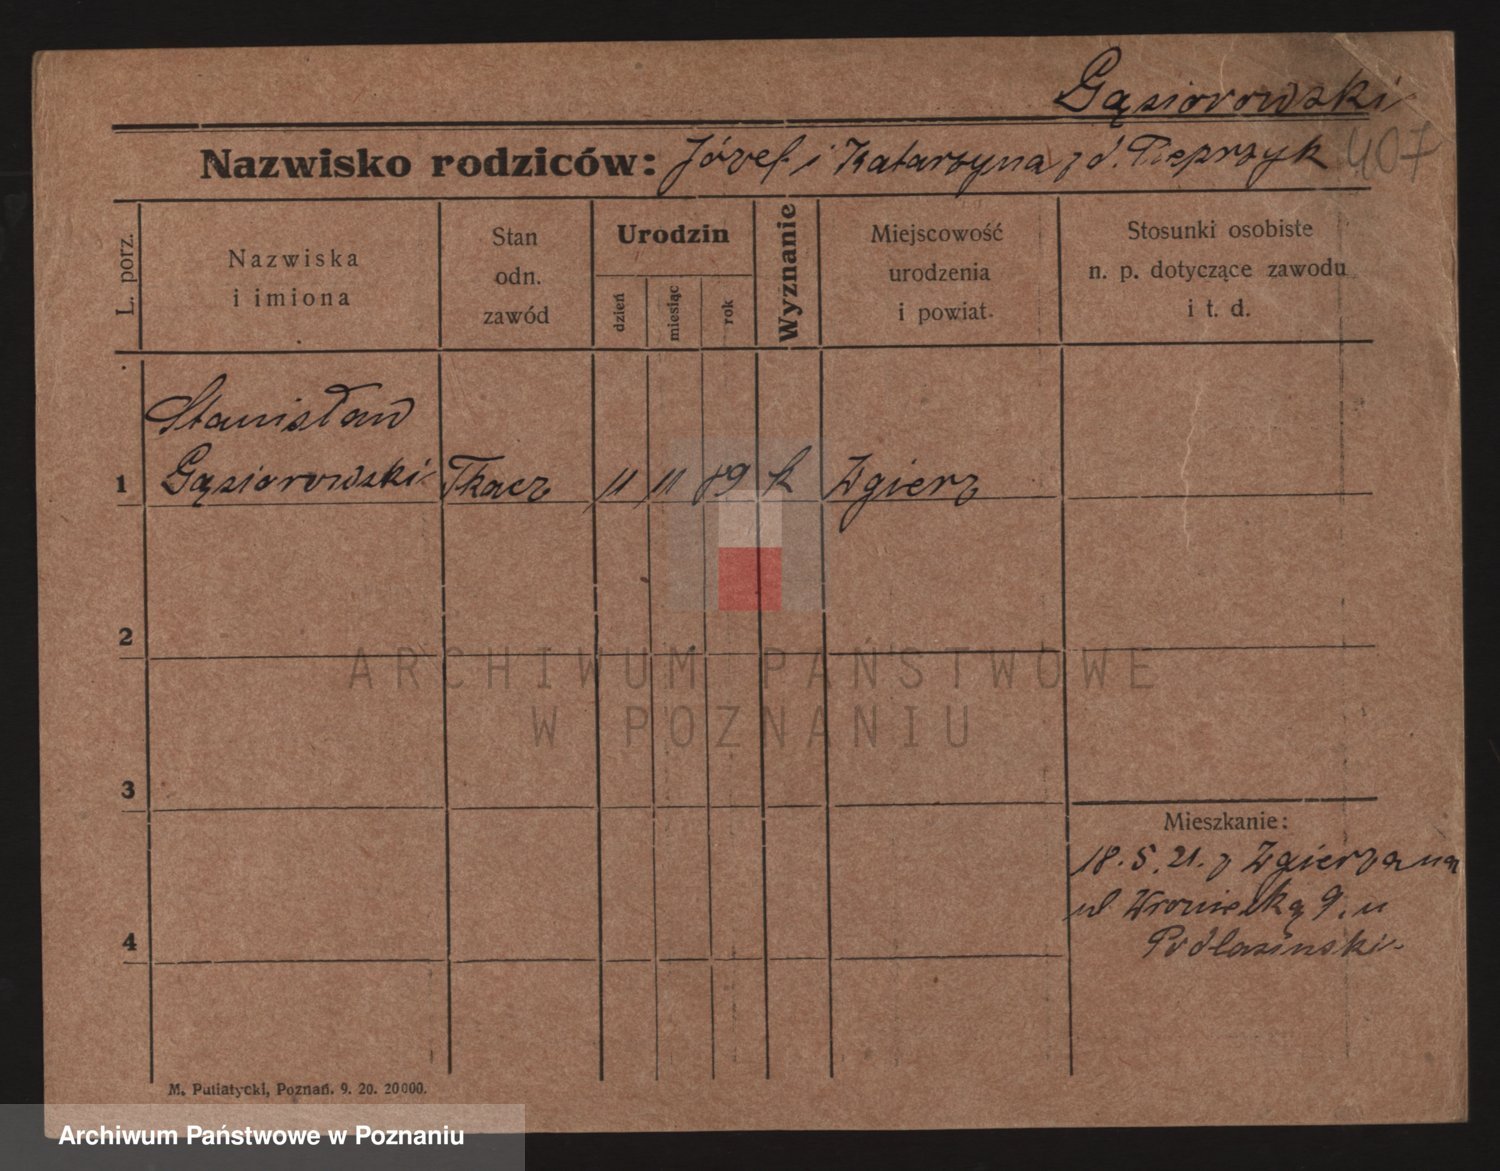 Gąsiorowski
Nazwisko rodziców: Józef i Katarzyna z d. Pieprzyk 407
L. porz.
Nazwiska
i imiona
Stan
odn.
zawód
Urodzin
dzień
miesiąc
rok
Wyznanie
Miejscowość
urodzenia
i powiat
Stosunki osobiste
n. p. dotyczące zawodu
i t. d.
Stanisław
1 Gąsiorowski Tkacz 11 11 89 k Zgierz
2
ARCHIWUM PAŃSTWOWE
W POZNANIU
3
Mieszkanie:
18. 5. 21. z Zgierza na
ul Wroniecką 9. u
4 Podlasinski
M. Putiatycki, Poznań. 9. 20. 20000.
Archiwum Państwowe w Poznaniu